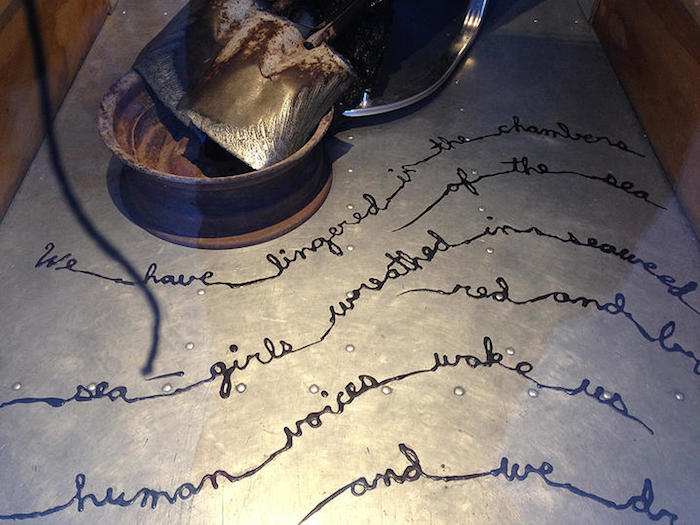 We have lingered in the chambers
of the sea
sea-girls wreathed in seaweed
red and br
human voices wake us
and we dr